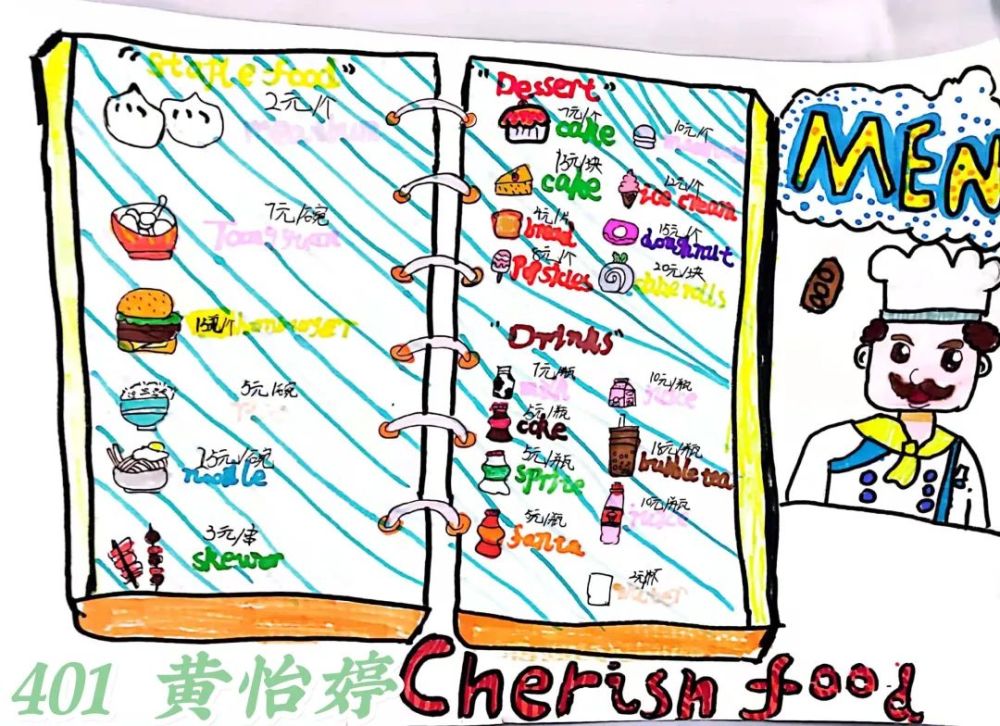 "Staple food"
2元/个
7元/碗
Tangyuan
15元/个 hamburger
5元/碗
rice
15元/碗
noodle
3元/串
skewer
"Dessert"
7元/个
cake
10元/个
15元/块
cake
12元/个
ice cream
4元/片
bread
15元/个
doughnut
8元/个
Popsicles
20元/块
cake rolls
"Drinks"
7元/瓶
milk
10元/瓶
juice
5元/瓶
coke
18元/瓶
bubble tea
5元/瓶
sprite
10元/瓶
juice
5元/瓶
fanta
2元/杯
water
MEN
Cherish food
401 黄怡婷